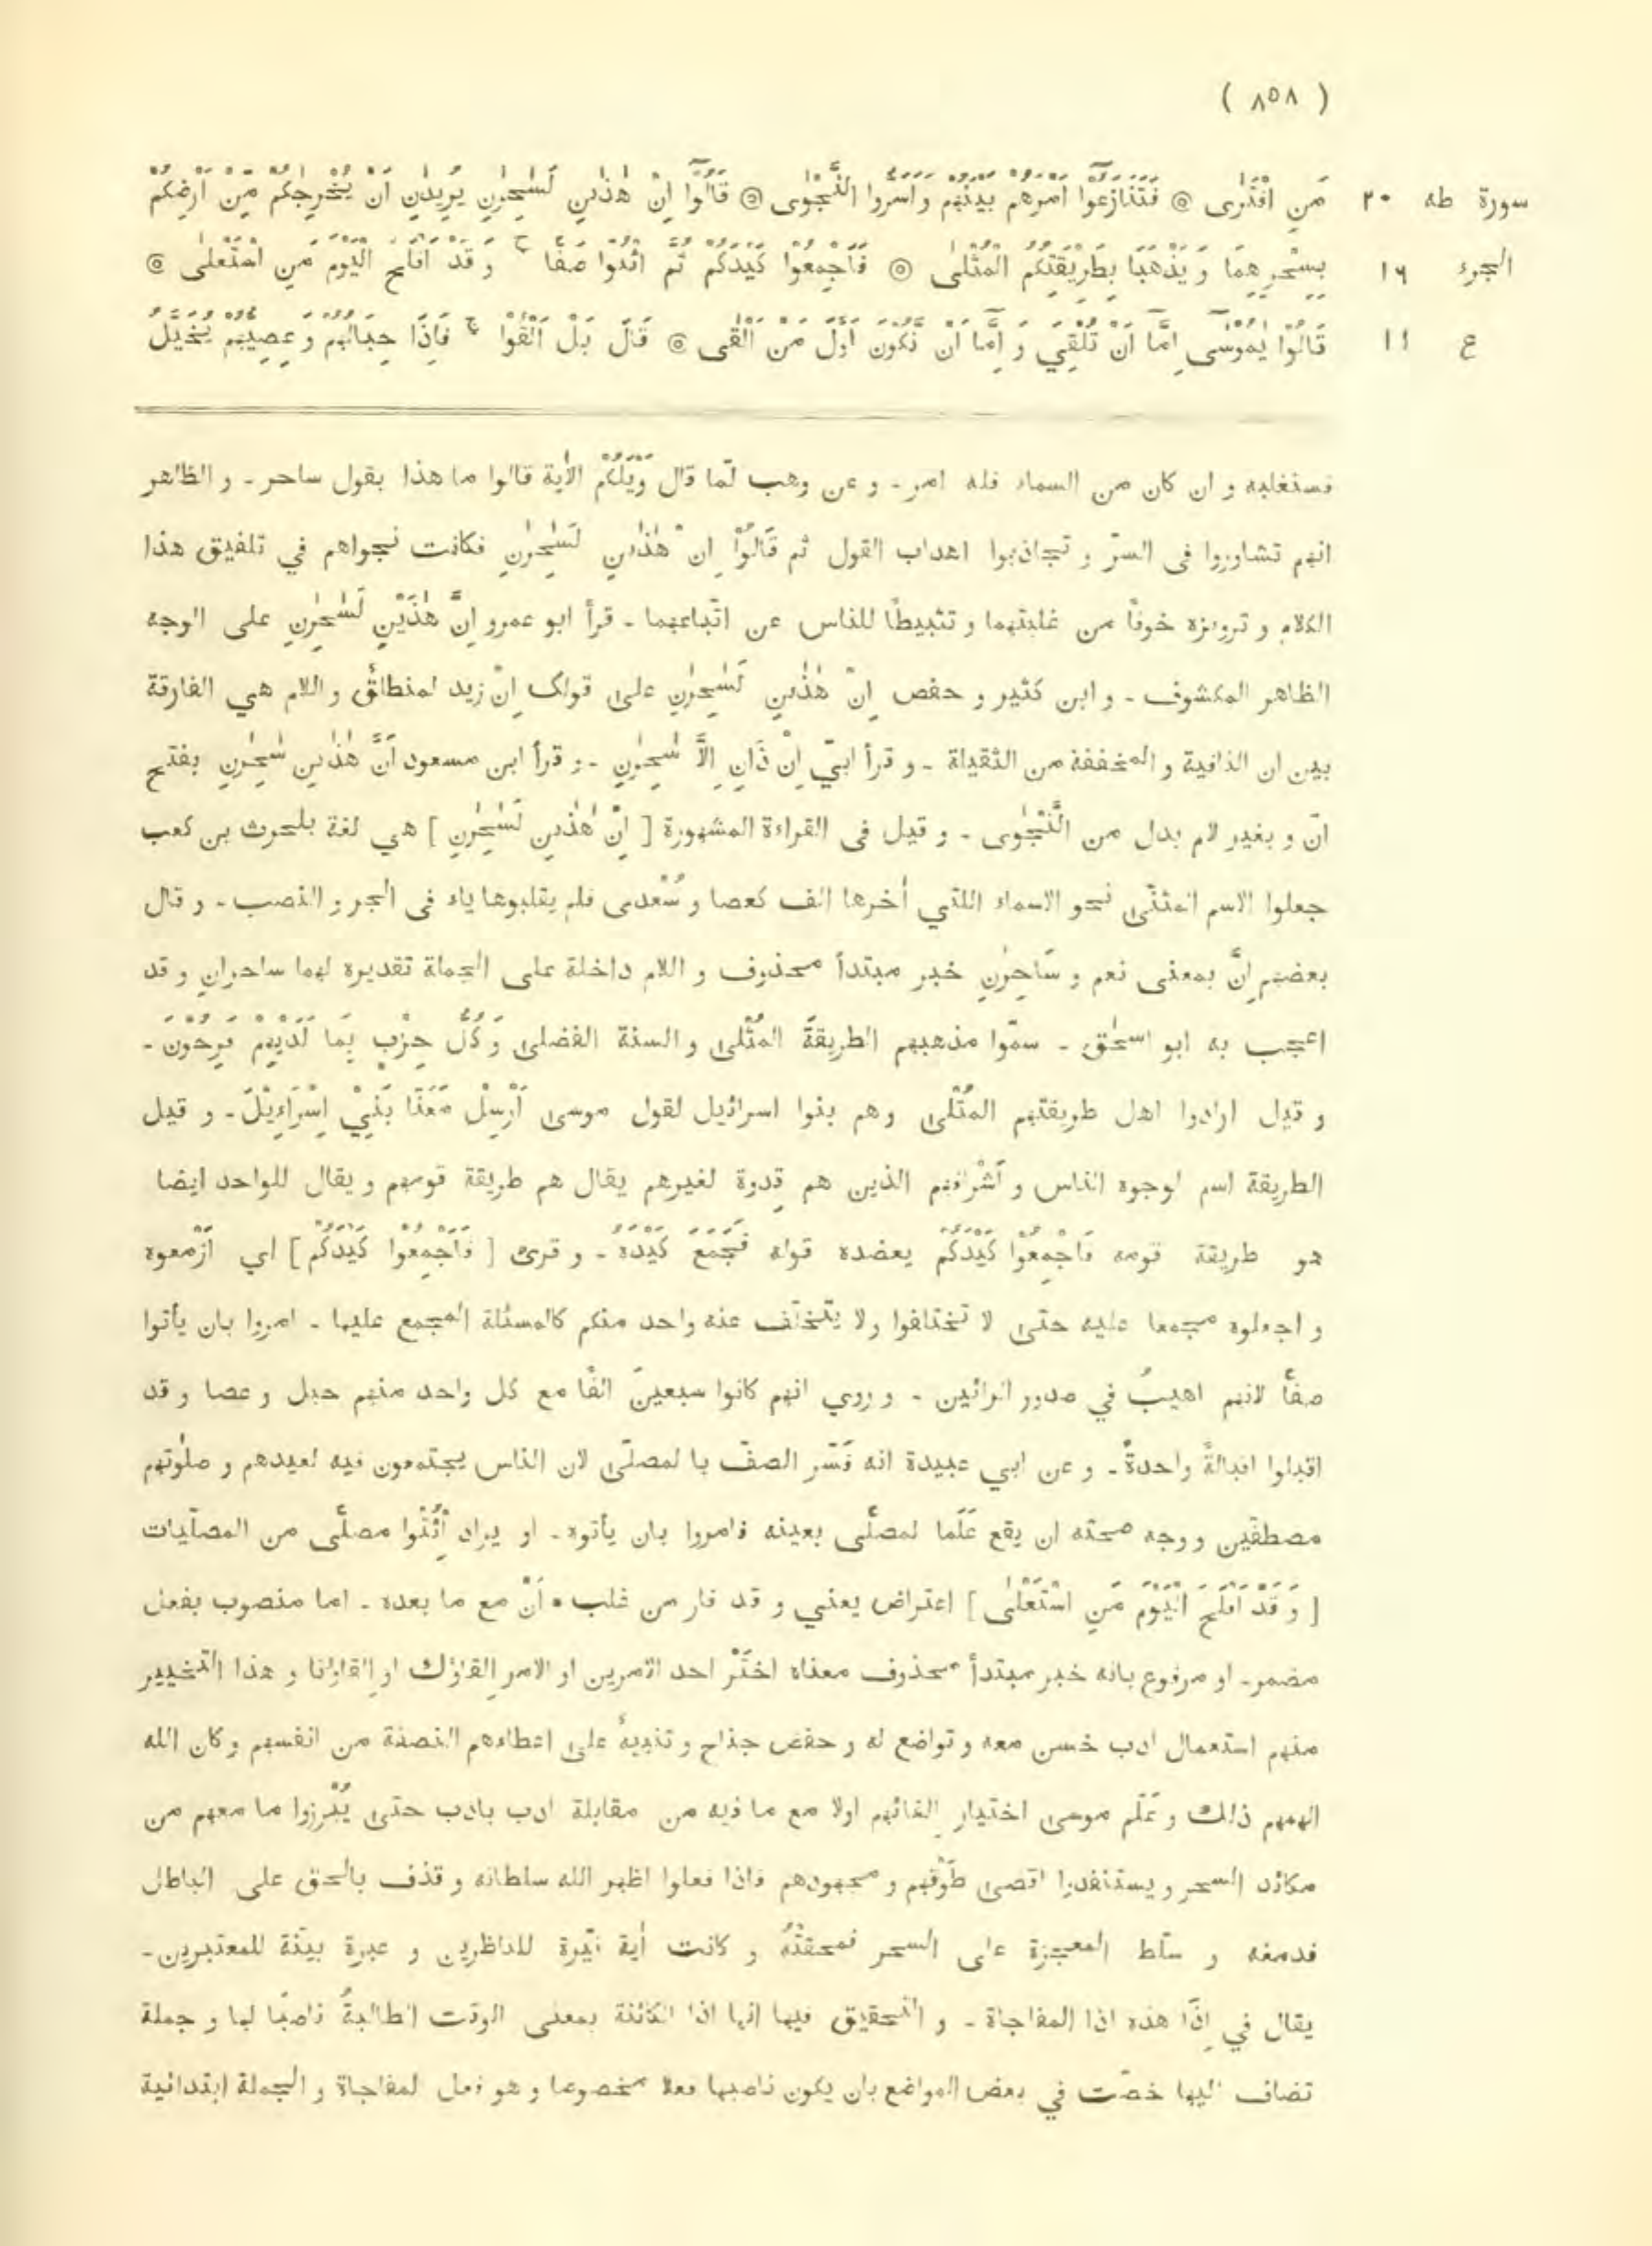 ( ٨٥٨ )
سورة طه ٢٠ مَنِ افْتَرٰى ۞ فَتَنَازَعُوْٓا اَمْرَهُمْ بَيْنَهُمْ وَاَسَرُّوا النَّجْوٰى ۞ قَالُوْٓا اِنْ هٰذٰنِ لَسٰحِرٰنِ يُرِيْدٰنِ اَنْ يُّخْرِجٰكُمْ مِّنْ اَرْضِكُمْ
الجزء ١٦ بِسِحْرِهِمَا وَيَذْهَبَا بِطَرِيْقَتِكُمُ الْمُثْلٰى ۞ فَاَجْمِعُوْا كَيْدَكُمْ ثُمَّ ائْتُوْا صَفًّا ج وَقَدْ اَفْلَحَ الْيَوْمَ مَنِ اسْتَعْلٰى ۞
ع ١١ قَالُوْا يٰمُوْسٰٓى اِمَّآ اَنْ تُلْقِيَ وَ اِمَّآ اَنْ نَّكُوْنَ اَوَّلَ مَنْ اَلْقٰى ۞ قَالَ بَلْ اَلْقُوْا ج فَاِذَا حِبَالُهُمْ وَعِصِيُّهُمْ يُخَيَّلُ
فسنغلبه و ان كان من السماء فله امر - و عن وهب لمّا قال وَيْلَكُمْ الاٰية قالوا ما هذا بقول ساحر - و الظاهر
انهم تشاوروا فى السرّ و تجاذبوا اهداب القول ثم قَالُوْٓا اِنْ هٰذٰنِ لَسٰحِرٰنِ فكانت نجواهم في تلفيق هذا
الكلام و تزويره خوفًا من غلبتهما و تثبيطًا للناس عن اتّباعهما - قرأ ابو عمرو اِنَّ هٰذَيْنِ لَسٰحِرٰنِ على الوجه
الظاهر المكشوف - و ابن كثير و حفص اِنْ هٰذٰنِ لَسٰحِرٰنِ على قولك اِنْ زيد لمنطلقٌ و اللام هي الفارقة
بين ان النافية و المخففة من الثقيلة - و قرأ ابيّ اِنْ ذَانِ اِلَّا سٰحِرٰنِ - و قرأ ابن مسعود اَنْ هٰذٰنِ سٰحِرٰنِ بفتح
انْ و بغير لام بدل من النَّجْوٰى - و قيل فى القراءة المشهورة [ اِنَّ هٰذٰنِ لَسٰحِرٰنِ ] هي لغة بلحرث بن كعب
جعلوا الاسم المثنّى نحو الاسماء اللتي اٰخرها الف كعصا و سُعْدى فلم يقلبوها ياء فى الجر و النصب - و قال
بعضهم اِنَّ بمعنى نعم و سَاحِرٰنِ خبر مبتدأ محذوف و اللام داخلة على الجملة تقديره لهما ساحرانِ و قد
اعجب به ابو اسحٰق - سمّوا مذهبهم الطريقةَ المُثْلى و السنة الفضلى وَ كُلُّ حِزْبٍ بِمَا لَدَيْهِمْ فَرِحُوْنَ -
و قيل ارادوا اهل طريقتهم المُثْلى وهم بنوا اسرائيل لقول موسى اَرْسِلْ مَعَنَا بَنِيْ اِسْرَاءِيْلَ - و قيل
الطريقة اسم لوجوه الناس و اَشْرافهم الذين هم قِدوة لغيرهم يقال هم طريقة قومهم و يقال للواحد ايضا
هو طريقة قومه فَاَجْمِعُوْا كَيْدَكُمْ يعضده قوله فَجَمَعَ كَيْدَهٗ - و قرئ [ فَاَجْمِعُوْا كَيْدَكُمْ ] اي اَزْمعوه
و اجعلوه مجمعا عليه حتى لا تختلفوا ولا يتخلّف عنه واحد منكم كالمسئلة المجمع عليها - امروا بان يأتوا
صفًّا لانهم اهيبُ في صدور الرائين - و روي انهم كانوا سبعين الفًا مع كل واحد منهم حبل و عصا و قد
اقبلوا اقبالةً واحدةً - و عن ابي عبيدة انه فَسّر الصفّ با لمصلّى لان الناس يجتمعون فيه لعيدهم و صلٰوتهم
مصطفّين و وجه صحته ان يقع عَلَما لمصلًّى بعينه فامروا بان يأتوه - او يراد اِئْتُوا مصلًّى من المصلّيات
[ وَ قَدْ اَفْلَحَ الْيَوْمَ مَنِ اسْتَعْلٰى ] اعتراض يعني و قد فاز من غلب • اَنْ مع ما بعده - اما منصوب بفعل
مضمر - او مرفوع بانه خبر مبتدأ محذوف معناه اخْتَرْ احد الامرين او الامر اِلقاؤك او اِلقاؤنا و هذا التخيير
منهم استعمال ادب حسن معه و تواضع له و خفض جناح و تنبيهٌ على اعطائهم النصفة من انفسهم و كان الله
الهمهم ذلك و عَلّم موسى اختيار اِلقائهم اولا مع ما فيه من مقابلة ادب بادب حتى يُبْرزوا ما معهم من
مكائد السحر و يستنفدوا اقصى طَوْقهم و مجهودهم فاذا فعلوا اظهر الله سلطانه و قذف بالحق على الباطل
فدمغه و سلّط المعجزة على السحر فمحقتْهُ و كانت اٰية نيّرة للناظرين و عبرة بيّنة للمعتبرين -
يقال في اِذَا هذه اذا المفاجاة - و التحقيق فيها انها اذا الكائنة بمعنى الوقت الطالبةُ ناصبًا لها و جملة
تضاف اليها خصّت في بعض المواضع بان يكون ناصبها فعلا مخصوصا و هو فعل المفاجاة و الجملة ابتدائية